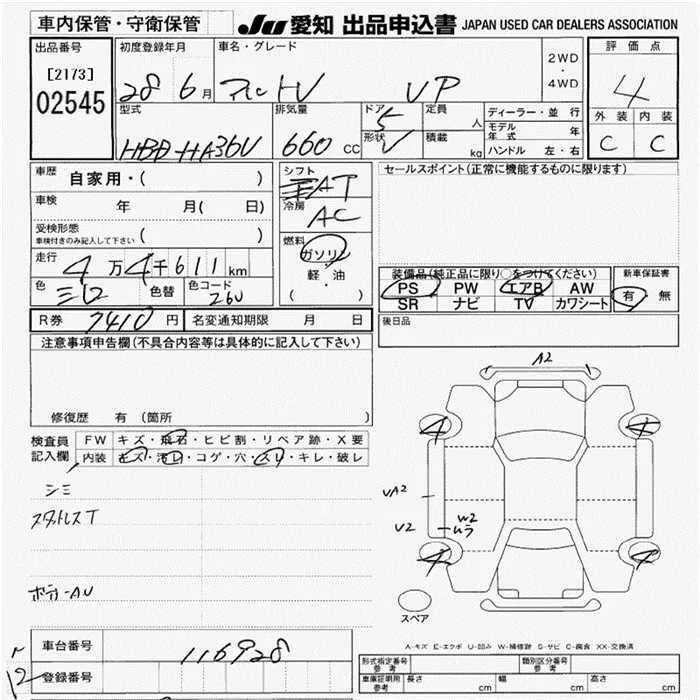 車内保管・守衛保管
JU 愛知 出品申込書 JAPAN USED CAR DEALERS ASSOCIATION
出品番号
[2173]
02545
初度登録年月
28 6月
車名・グレード
アルトV VP
2WD
・
4WD
評価点
4
外装 内装
C C
型式
HBD-HA36V
排気量
660 CC
ドア
5
形状
V
定員
人
積載
kg
ディーラー・並行
モデル年式 年
ハンドル 左・右
車歴
自家用・( )
車検
年 月( 日)
受検形態
車検付きのみ記入して下さい ( )
走行
4万4千611km
色
色替
色コード
26U
シフト
AT
冷房
AC
燃料
ガソリン
軽・油
( )
セールスポイント(正常に機能するものに限ります)
装備品(純正品に限り○をつけてください)
PS PW エアB AW
SR ナビ TV カワシート
新車保証書
有 無
R券 7410円 名変通知期限 月 日
後日品
注意事項申告欄(不具合内容等は具体的に記入して下さい)
修復歴 有 (箇所 )
検査員記入欄
FW キズ・飛石・ヒビ割・リペア跡・X要
内装 キズ・汚レ・コゲ・穴・スレ・キレ・破レ
シミ
スタッドレスT
ボデーAU
A2
4 4
UA2
U2
W2
ムラ
4 4
スペア
A-キズ E-エクボ U-凹み W-補修跡 S-サビ C-腐食 XX-交換済
車台番号
116928
登録番号
12
形式指定番号 参考
類別区分番号 参考
車庫証明用 参考 長さ cm 幅 cm 高さ cm